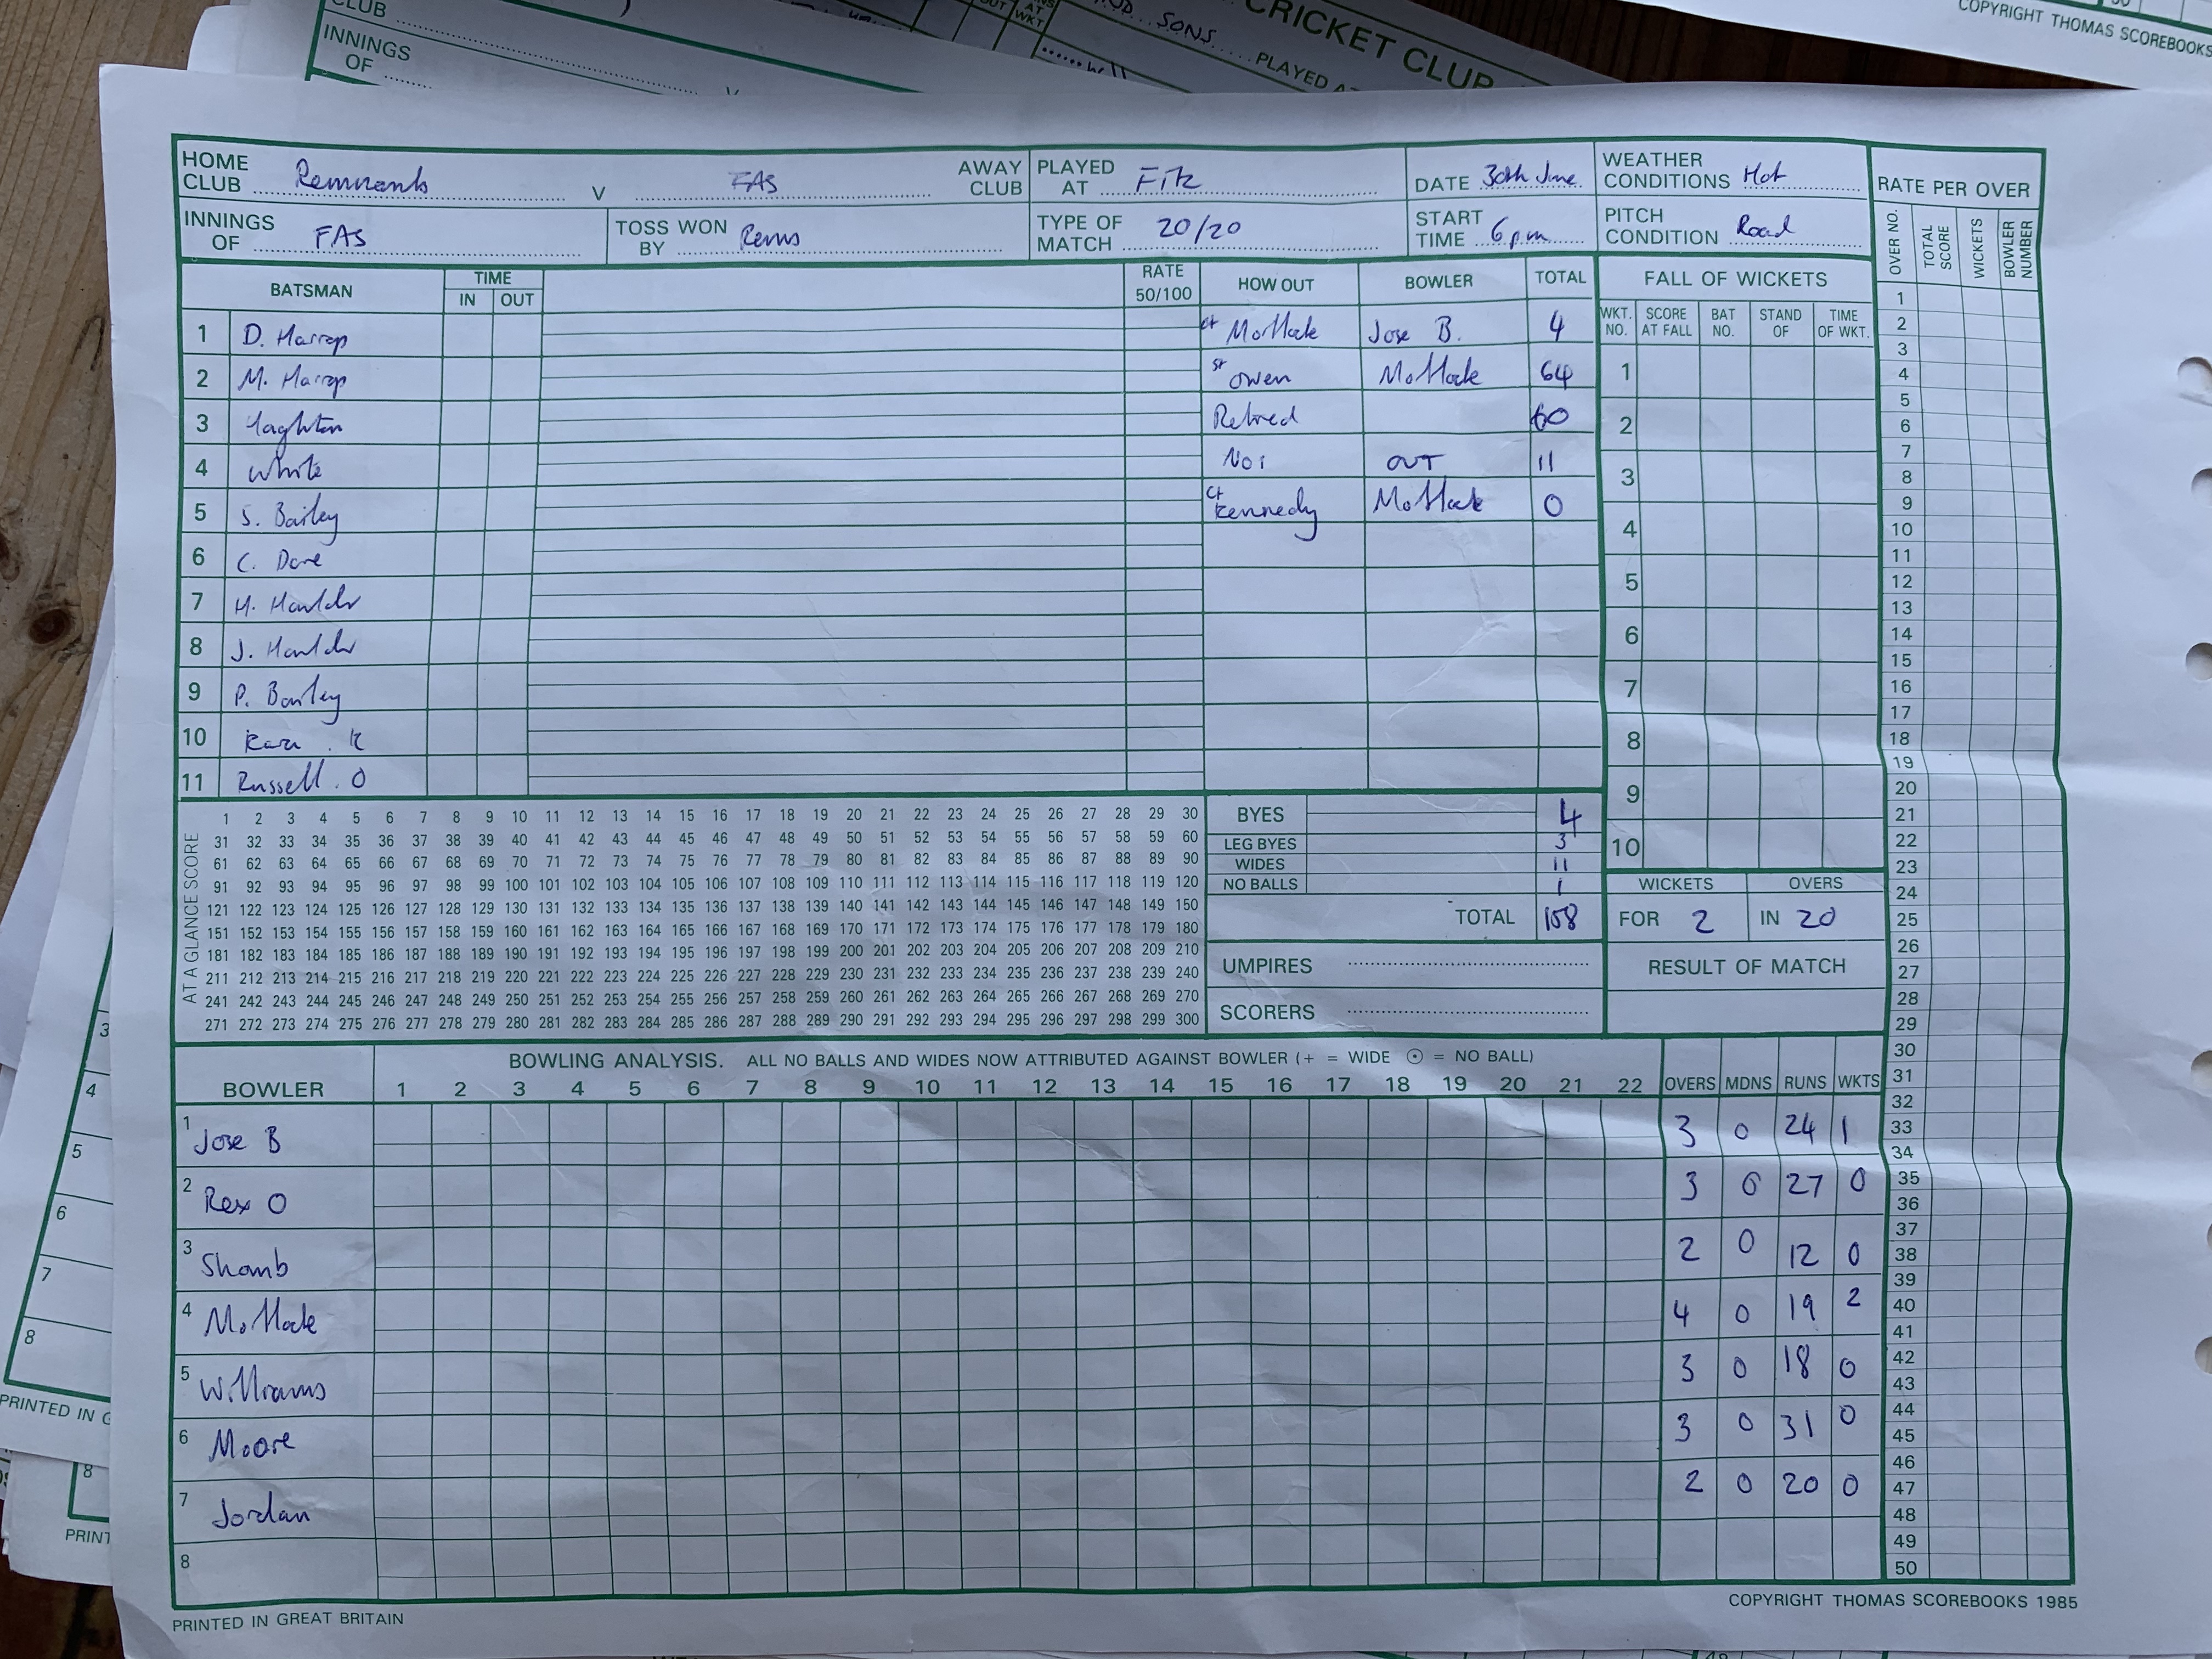 CLUB
INNINGS
OF
V
OUT
AT
WKT
SONS
PLAYED AT
CRICKET CLUB
COPYRIGHT THOMAS SCOREBOOKS
HOME CLUB Remnants V FAS AWAY CLUB
PLAYED AT Fitz
DATE 30th June
WEATHER CONDITIONS Hot
INNINGS OF FAS
TOSS WON BY Rems
TYPE OF MATCH 20/20
START TIME 6pm
PITCH CONDITION Road
RATE PER OVER
OVER NO. TOTAL SCORE WICKETS BOWLER NUMBER
BATSMAN TIME IN OUT RATE 50/100 HOW OUT BOWLER TOTAL
1 D. Harrop ct Mottock Jose B. 4
2 M. Harrop st Owen Mottock 64
3 Haghton Retired 60
4 White Not OUT 11
5 S. Bailey ct Kennedy Mottock 0
6 C. Dare
7 H. Houlder
8 J. Houlder
9 P. Bailey
10 K
11 Russell. O
FALL OF WICKETS
WKT. NO. SCORE AT FALL BAT NO. STAND OF TIME OF WKT.
1
2
3
4
5
6
7
8
9
10
AT A GLANCE SCORE
1 2 3 4 5 6 7 8 9 10 11 12 13 14 15 16 17 18 19 20 21 22 23 24 25 26 27 28 29 30
31 32 33 34 35 36 37 38 39 40 41 42 43 44 45 46 47 48 49 50 51 52 53 54 55 56 57 58 59 60
61 62 63 64 65 66 67 68 69 70 71 72 73 74 75 76 77 78 79 80 81 82 83 84 85 86 87 88 89 90
91 92 93 94 95 96 97 98 99 100 101 102 103 104 105 106 107 108 109 110 111 112 113 114 115 116 117 118 119 120
121 122 123 124 125 126 127 128 129 130 131 132 133 134 135 136 137 138 139 140 141 142 143 144 145 146 147 148 149 150
151 152 153 154 155 156 157 158 159 160 161 162 163 164 165 166 167 168 169 170 171 172 173 174 175 176 177 178 179 180
181 182 183 184 185 186 187 188 189 190 191 192 193 194 195 196 197 198 199 200 201 202 203 204 205 206 207 208 209 210
211 212 213 214 215 216 217 218 219 220 221 222 223 224 225 226 227 228 229 230 231 232 233 234 235 236 237 238 239 240
241 242 243 244 245 246 247 248 249 250 251 252 253 254 255 256 257 258 259 260 261 262 263 264 265 266 267 268 269 270
271 272 273 274 275 276 277 278 279 280 281 282 283 284 285 286 287 288 289 290 291 292 293 294 295 296 297 298 299 300
BYES 4
LEG BYES 3
WIDES 11
NO BALLS 1
TOTAL 158
UMPIRES
SCORERS
WICKETS OVERS
FOR 2 IN 20
RESULT OF MATCH
BOWLING ANALYSIS. ALL NO BALLS AND WIDES NOW ATTRIBUTED AGAINST BOWLER (+ = WIDE ⊙ = NO BALL)
BOWLER 1 2 3 4 5 6 7 8 9 10 11 12 13 14 15 16 17 18 19 20 21 22 OVERS MDNS RUNS WKTS
1 Jose B 3 0 24 1
2 Rex O 3 0 27 0
3 Shamb 2 0 12 0
4 Mottock 4 0 19 2
5 Williams 3 0 18 0
6 Moore 3 0 31 0
7 Jordan 2 0 20 0
8
1
2
3
4
5
6
7
8
9
10
11
12
13
14
15
16
17
18
19
20
21
22
23
24
25
26
27
28
29
30
31
32
33
34
35
36
37
38
39
40
41
42
43
44
45
46
47
48
49
50
PRINTED IN GREAT BRITAIN
COPYRIGHT THOMAS SCOREBOOKS 1985
3
4
5
6
7
8
PRINTED IN G
8
PRINT